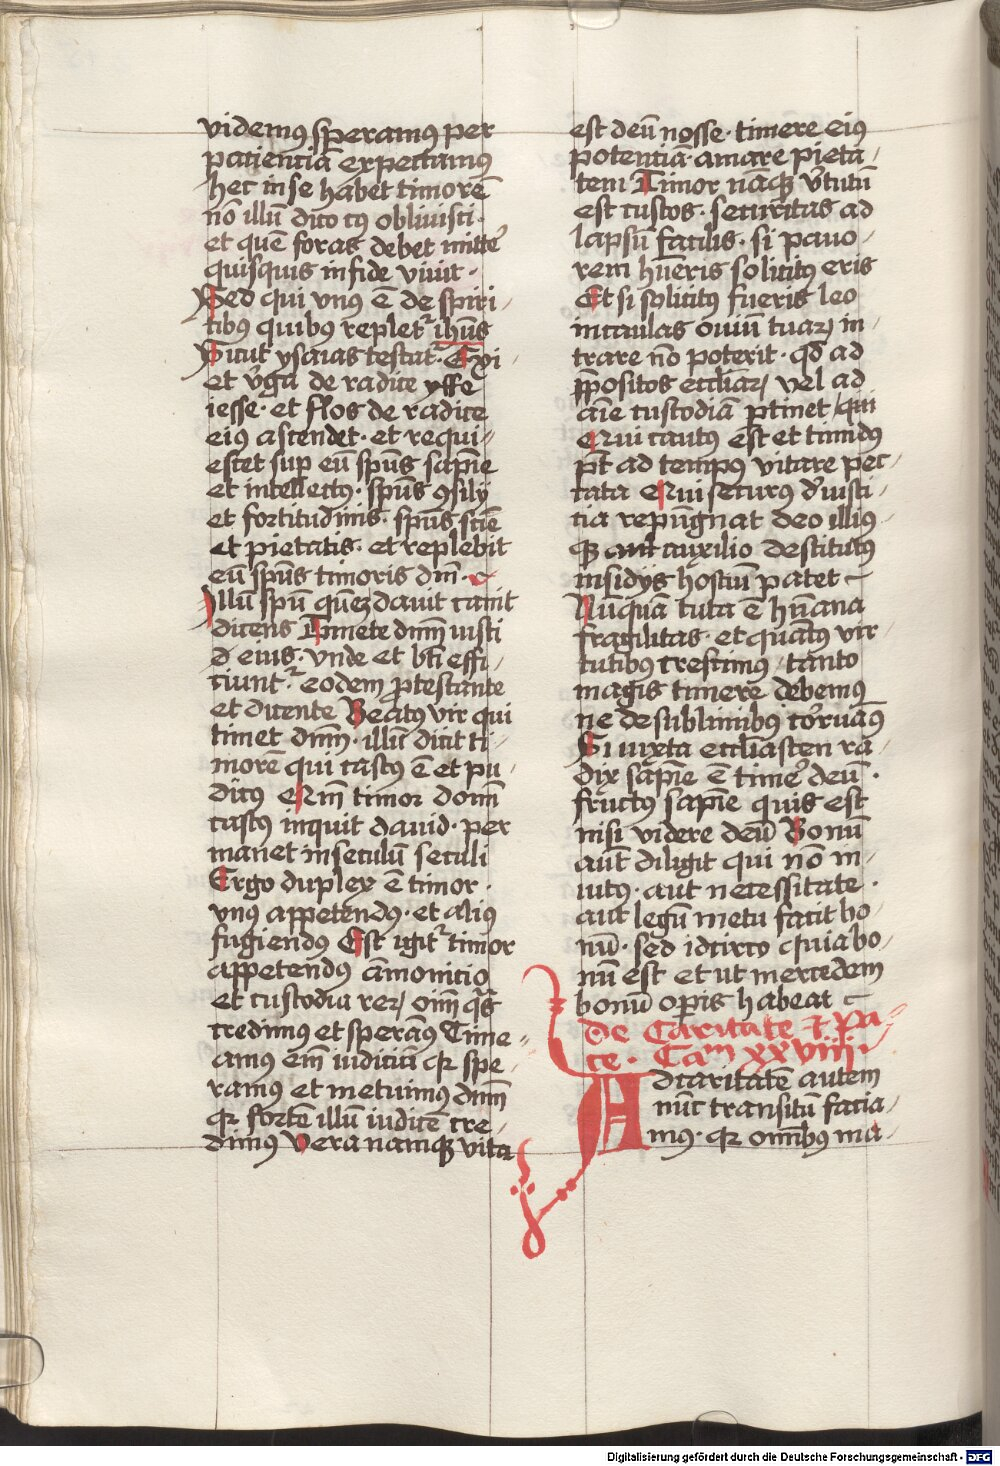 videmꝰ speramꝰ per
patientiā expectamꝰ
hec in se habet timorē
nō illū dico cꝰ oblivisci·
et quē foras debet mitte᷑
quisquis in fide vivit·
Sed qui vnus ē de spiri-
tibꝰ quibꝰ replet᷑ ihūs
Sicut ysaias testat᷑· Exi
et v̓ga de radice yffe
iesse· et flos de radice
eiꝰ ascendet· et requi-
escet suꝑ eū spūs sapīe
et intellectꝰ· spūs ꝯsilij
et fortitudinis· spūs sciē
et pietatis· et replebit
eū spūs timoris dnī·
Illū spū quēȝ davit canit
dicens Timete dnm̄ iusti
d eius· vnde et bti effi-
ciunt᷑ eodem ꝓtestante
et dicente Beatꝰ vir qui
timet dnm̄· illū dicit ti-
morē qui castꝰ ē et pu-
dicꝰ Nm̄ timor domī
castꝰ inquit david· per
manet in seculū seculi
Ergo duplex ē timor·
vnꝰ appetendꝰ· et aliꝰ
fugiendꝰ Est igit᷑ timor
appetendꝰ āmonicio
et custodia reꝝ oīm q̄s
credimꝰ et sperāꝰ Time-
amꝰ em̄ iudiciū qꝛ spe-
ramꝰ et metuimꝰ dnm̄
qꝛ fortē illū iudicē cre-
dimꝰ Vera namqꝫ vita
est deū nosse· timere eiꝰ
potentiā· amare pieta-
tem Timor nāqꝫ v̓tutū
est custos· securitas ad
lapsū facilis· si pavo-
rem hn̄eris solicitꝰ eris
Et si solicitꝰ fueris leo
in caulas oviū tuaꝝ in-
trare nō poterit· qd̄ ad
p̄positos eccl̄iaꝝ vel ad
aīe custodiā ꝑtinet qui
Qui cautꝰ est et timidꝰ
pt̄ ad tempꝰ vitare pec-
cata Qui securꝰ d̓ iusti-
cia repūgnat deo illiꝰ
qꝫ aut auxilio destitutꝰ
insidijs hostiū patet
Nūquā tuta ē hūana
fragilitas· et quātꝰ vir
tutibꝰ crescimꝰ tanto
magis timere debemꝰ
ne de sublimibꝰ cor̓uāꝰ
Si iuxta eccl̄iasten ra-
dix sapīe ē time᷑ deū·
fructꝰ sapīe quis est
nisi videre deū Bonū
aut̄ diligit qui nō in-
vitꝰ· aut necessitate·
aut legū metu facit bo-
nū· sed idcirco qꝛ uia bo-
nū est et ut mercedem
bonū oꝑis habeat
De Caritate et Pa-
ce· Cam xxviiii·
Ad caritatē autem
nūc transitū facia-
mꝰ· qꝛ omībꝰ ma-
Digitalisierung gefördert durch die Deutsche Forschungsgemeinschaft - DFG